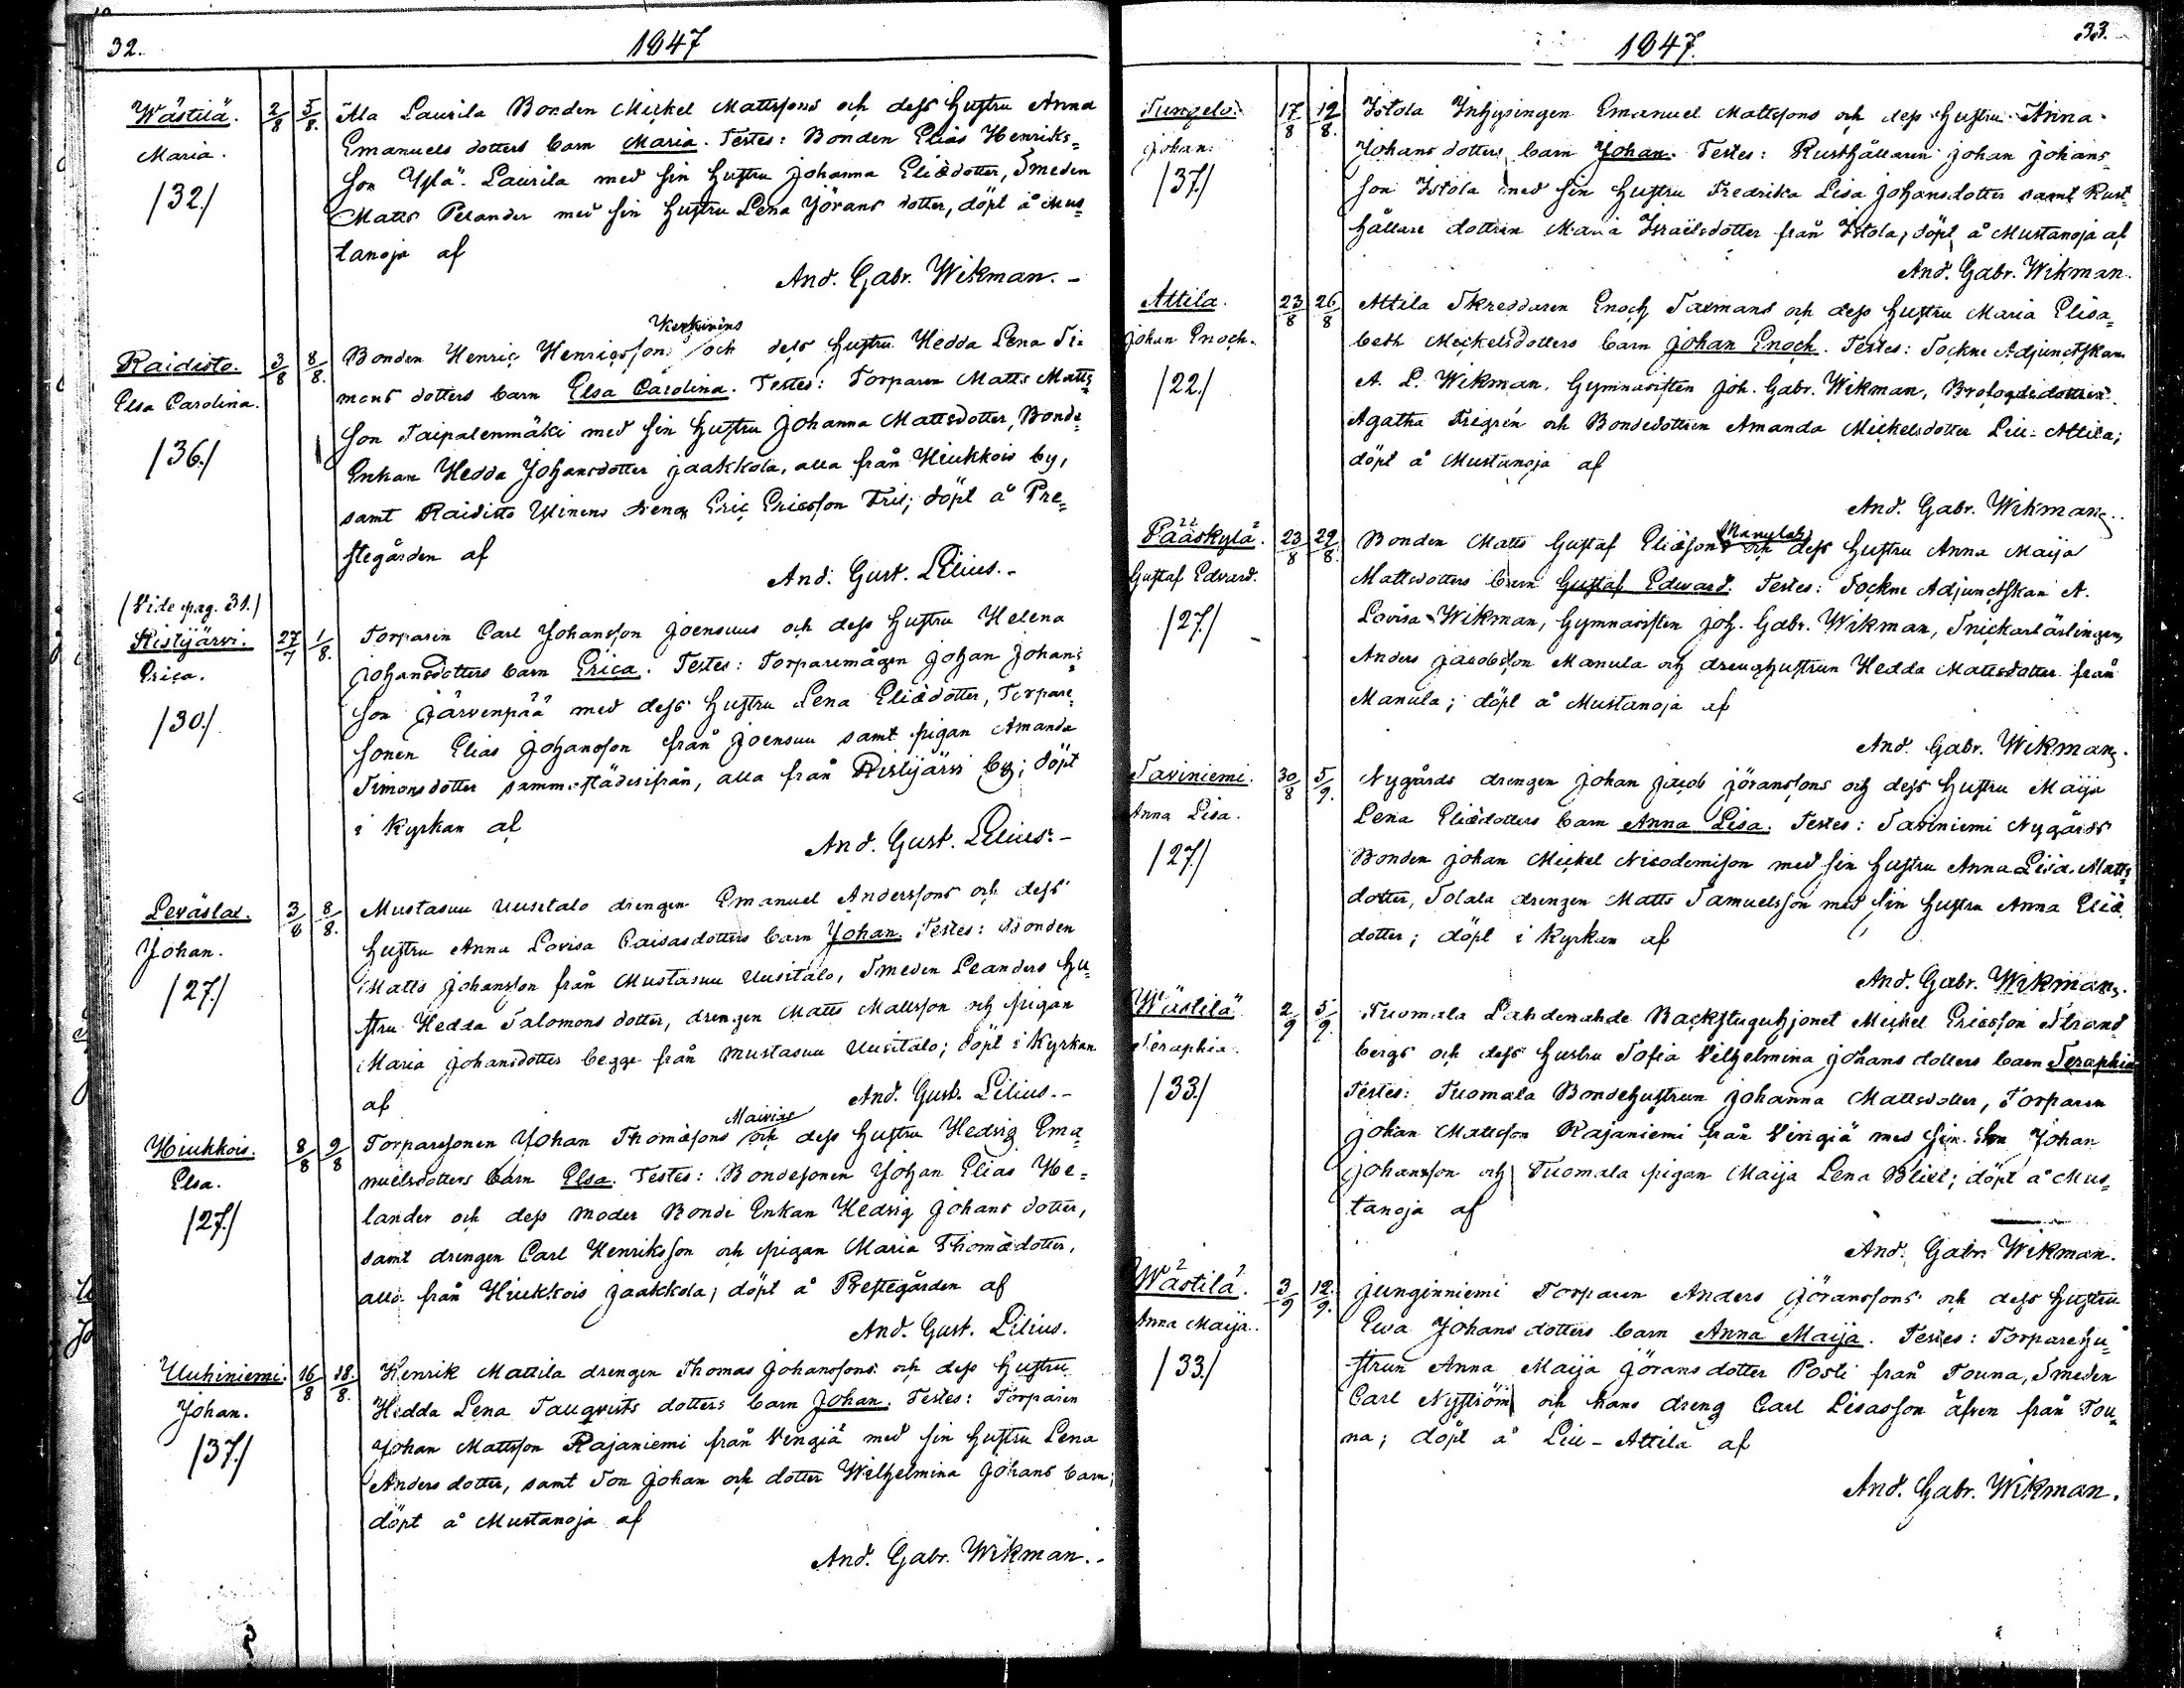 32.
1847
Wästilä.
Maria.
/32./
2/8
5/8.
Ala Laurila Bonden Mickel Mattssons och dess hustru Anna
Emanuels dotters barn Maria. Testes: Bonden Elias Henriks=
son Yylä-Laurila med sin hustru Johanna Eliædotter, Smeden
Matts Pelander med sin hustru Lena Jörans dotter, döpt å Mus=
tanoja af
And. Gabr. Wikman.-
Raidisto.
Elsa Carolina.
/36./
3/8
8/8.
Bonden Henric Henricssons och dess hustru Hedda Lena Si=
mons dotters barn Elsa Carolina. Testes: Torparen Matts Matts=
son Taipalenmäki med sin hustru Johanna Mattsdotter, Bonde
Enkan Hedda Johansdotter Jaakkola, alla från Hiukkois by,
samt Raidisto drengen Eric Ericsson Fris; döpt å Pre=
stegården af
And. Gust. Lilius.-
(Vide pag. 31.)
Ristijärvi.
Erica.
/30./
27/7
1/8.
Torparen Carl Johansson Joensuus och dess hustru Helena
Johansdotters barn Erica. Testes: Torparemågen Johan Johans=
son Järvenpää med dess hustru Lena Eliædotter, Torpare=
sonen Elias Johansson från Joensuu samt pigan Amanda
Simonsdotter sammastädesifrån, alla från Ristijärvi by; döpt
i Kyrkan af
And. Gust. Lilius.-
Leväslax.
Johan.
/27./
3/8
8/8.
Mustasuu Uusitalo drengen Emanuel Anderssons och dess
hustru Anna Lovisa Caisasdotters barn Johan. Testes: Bonden
Matts Johansson från Mustasuu Uusitalo, Smeden Leanders hu=
stru Hedda Salomons dotter, drengen Matts Mattsson och pigan
Maria Johansdotter begge från Mustasuu Uusitalo; döpt i Kyrkan
af And. Gust. Lilius.-
Hiukkois.
Elsa.
/27./
8/8
9/8
Torparesonen Johan Thomæsons och dess hustru Hedvig Ema=
nuelsdotters barn Elsa. Testes: Bondesonen Johan Elias He=
lander och dess moder Bonde Enkan Hedvig Johans dotter,
samt drengen Carl Henriksson och pigan Maria Thomædotter,
alla från Hiukkois Jaakkola; döpt å Prestegården af
And. Gust. Lilius.
Uuhiniemi.
Johan.
/37./
16/8
18./8.
Henrik Mattila drengen Thomas Johanssons och dess hustru
Hedda Lena Tauqvists dotters barn Johan. Testes: Torparen
Johan Mattsson Rajaniemi från Vengiä med sin hustru Lena
Anders dotter, samt Son Johan och dotter Wilhelmina Johans barn;
döpt å Mustanoja af
And. Gabr. Wikman.-
1847.
33.
Tungelo.
Johan.
/37./
17/8
19/8.
Istola Inhysingen Emanuel Mattssons och dess hustru Anna
Johans dotters barn Johan. Testes: Rusthållaren Johan Johans=
son Istola med sin hustru Fredrika Lisa Johansdotter samt Rust=
hållare dottren Maria Israëlsdotter från Istola; döpt å Mustanoja af
And. Gabr. Wikman.
Attila.
Johan Enoch.
/22./
23/8
26/8
Attila Skreddaren Enoch Saxmans och dess hustru Maria Elisa=
beth Mickelsdotters barn Johan Enoch. Testes: Sockne Adjunctskan
A. L. Wikman, Gymnasisten Joh. Gabr. Wikman,
Agatha och Bondedottren Amanda Mickelsdotter Liu-Attila;
döpt å Mustanoja af
And. Gabr. Wikman.
Pääskylä.
Gustaf Edvard.
/27./
23/8
29/8.
Bonden Matts Gustaf Eliæsons Manulas och dess hustru Anna Maija
Mattsdotters barn Gustaf Edward. Testes: Sockne Adjunctskan A.
Lovisa Wikman, Gymnasisten Joh. Gabr. Wikman, Snickarlärlingen
Anders Jacobsson Manula och drenghustrun Hedda Mattsdotter från
Manula; döpt å Mustanoja af
And. Gabr. Wikman.
Saviniemi.
Anna Lisa.
/27./
30/8
5/9.
Nygårds drengen Johan Jacob Jöranssons och dess hustru Maija
Lena Eliædotters barn Anna Lisa. Testes: Saviniemi Nygårds
Bonden Johan Mickel Nicodemison med sin hustru Anna Lisa Matts=
dotter, Tolala drengen Matts Samuelsson med sin hustru Anna Eliæ
dotter; döpt i Kyrkan af
And. Gabr. Wikman.
Wästilä.
Seraphia.
/33./
2/9
5/9.
Tuomala Lahdenahde Backstuguhjonet Mickel Ericsson Strand=
bergs och dess hustru Sofia Vilhelmina Johans dotters barn Seraphia
Testes: Tuomala Bondehustrun Johanna Mattsdotter, Torparen
Johan Mattsson Rajaniemi från Vengiä med sin Son Johan
Johansson och Tuomala pigan Maija Lena Blixt; döpt å Mus=
tanoja af
And. Gabr. Wikman.
Wästilä.
Anna Maija.
/33./
3/9
12./9.
Junginniemi Torparen Anders Jöranssons och dess hustru
Ewa Johans dotters barn Anna Maija. Testes: Torparehu=
strun Anna Maija Jörans dotter Posti från Touna, Smeden
Carl Nyström och hans dreng Carl Lisasson äfven från Tou=
na; döpt å Liu-Attila af
And. Gabr. Wikman.